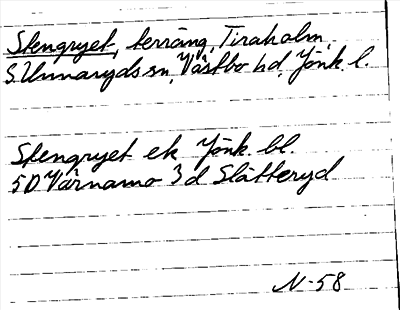 Stengryet, terräng, Tiraholm,
S. Unnaryds sn, Västbo hd, Jönk. l.
Stengryet ek Jönk. bl.
5D Värnamo 3 d Slätteryd
N-58